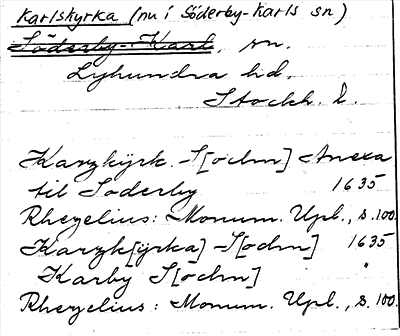 Karlskyrka (nu i Söderby-Karls sn)
Söderby-Karl, sn.
Lyhundra hd.
Stockh. l.
Karzkÿrk. S[ochn] Anexa
til Soderby 1635
Rhezelius: Monum. Upl., s. 100.
Karzk[ÿrka] S[ochn] 1635
Karby S[ochn] "
Rhezelius: Monum. Upl., s. 100.